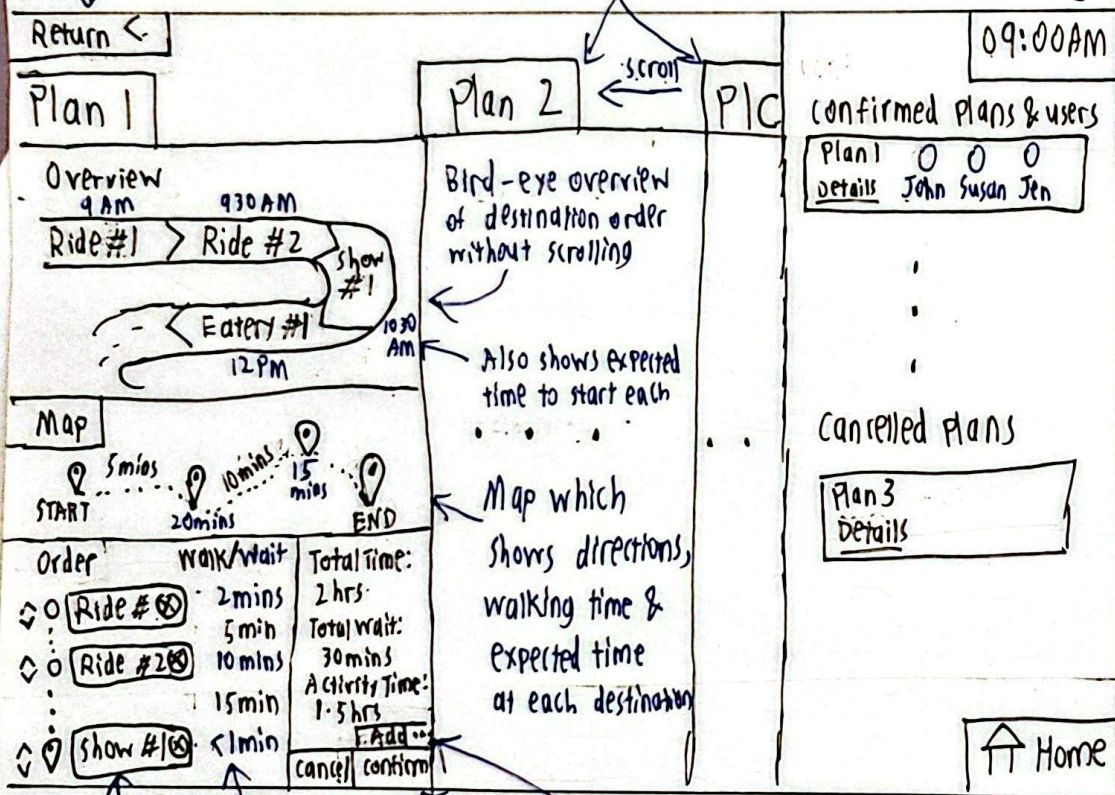 Return <
09:00AM
Plan 1
Plan 2
scroll
Pla
Confirmed plans & users
Plan1
Details
John Susan Jen
Overview
9 AM
930AM
Ride #1
Ride #2
Show #1
1030 AM
Eatery #1
12PM
Bird-eye overview
of destination order
without scrolling
Also shows expected
time to start each
Cancelled plans
Plan 3
Details
Map
START
5mins
20mins
10mins
15 mins
END
Map which
shows directions,
walking time &
expected time
at each destination
Order
Walk/Wait
Ride #
2mins
5min
Ride #2
10 mins
15min
Show #1
<1min
Total Time:
2hrs.
Total wait:
30mins
Activity Time:
1.5hrs
Add ...
cancel
confirm
Home